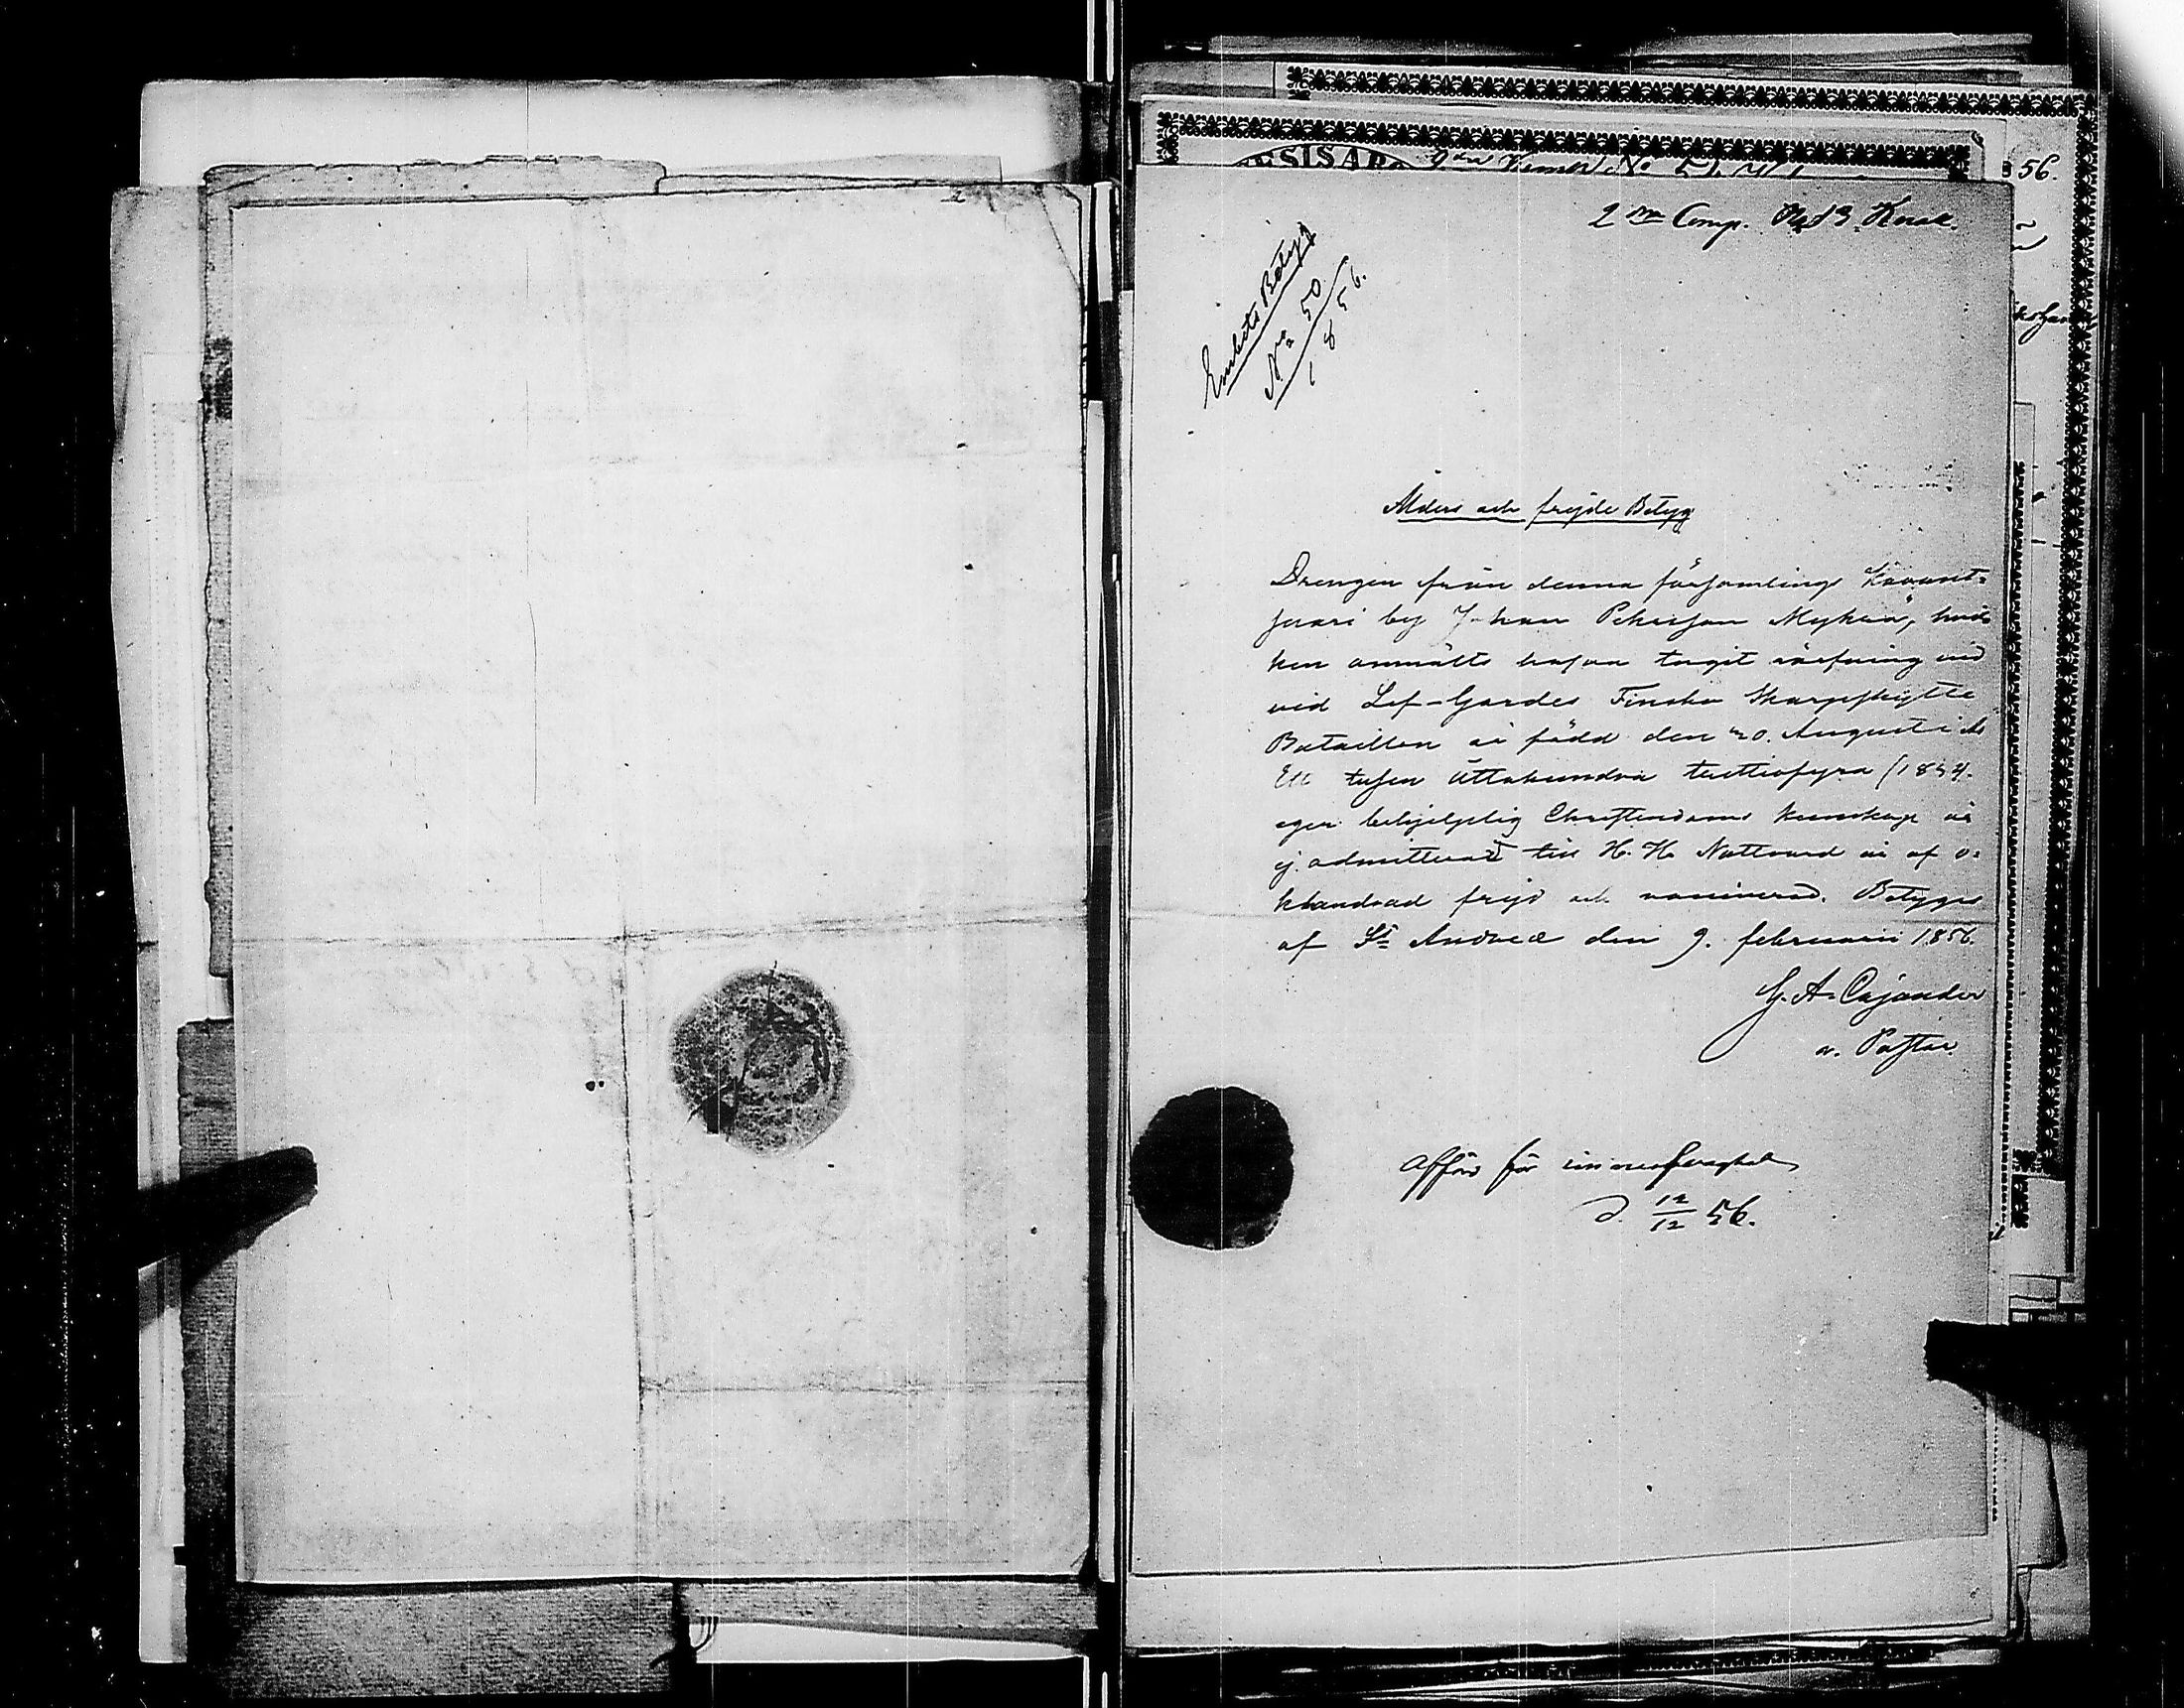 2dra Comp. No 13. Knak.
Embets Betyg
Nro 50
1856.
Ålders och frejde Betyg
Drengen från denna församlings Kavant-
saari by Johan Petersson Mykrä, hvil-
ken anmälts hafva tagit värfning vid
vid Lif-Gardes Finska Skarpskytte
Bataillon är född den 20. Augusti år
Ett tusen Åttahundra trettiofyra (1834.
eger behjelplig Christendoms kunskap är
ej admitterad till H. H. Nattvard är af o-
klandrad frejd och vaccinerad. Betygas
af St Andreæ den 9. februarii 1856.
G. A. Cajander
v. Pastor.
Afförd för
d. 12/12 56.
56.